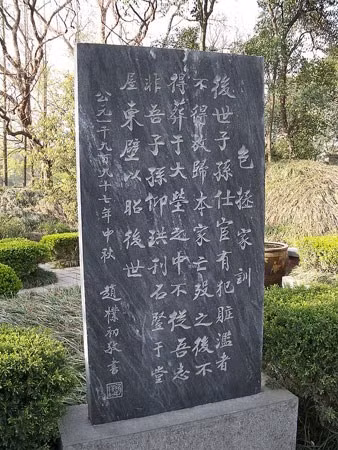 包拯家訓
後世子孫仕宦有犯贓濫者
不得放歸本家亡歿之後不
得葬于大塋之中不從吾志
非吾子孫仰珙刊石竪于堂
屋東壁以昭後世
公元一千九百九十七年中秋 趙樸初敬書